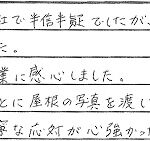 社で半信半疑でしたが、
た。
業に感心しました。
とに屋根の写真を渡し
寧な応対が心強かっ